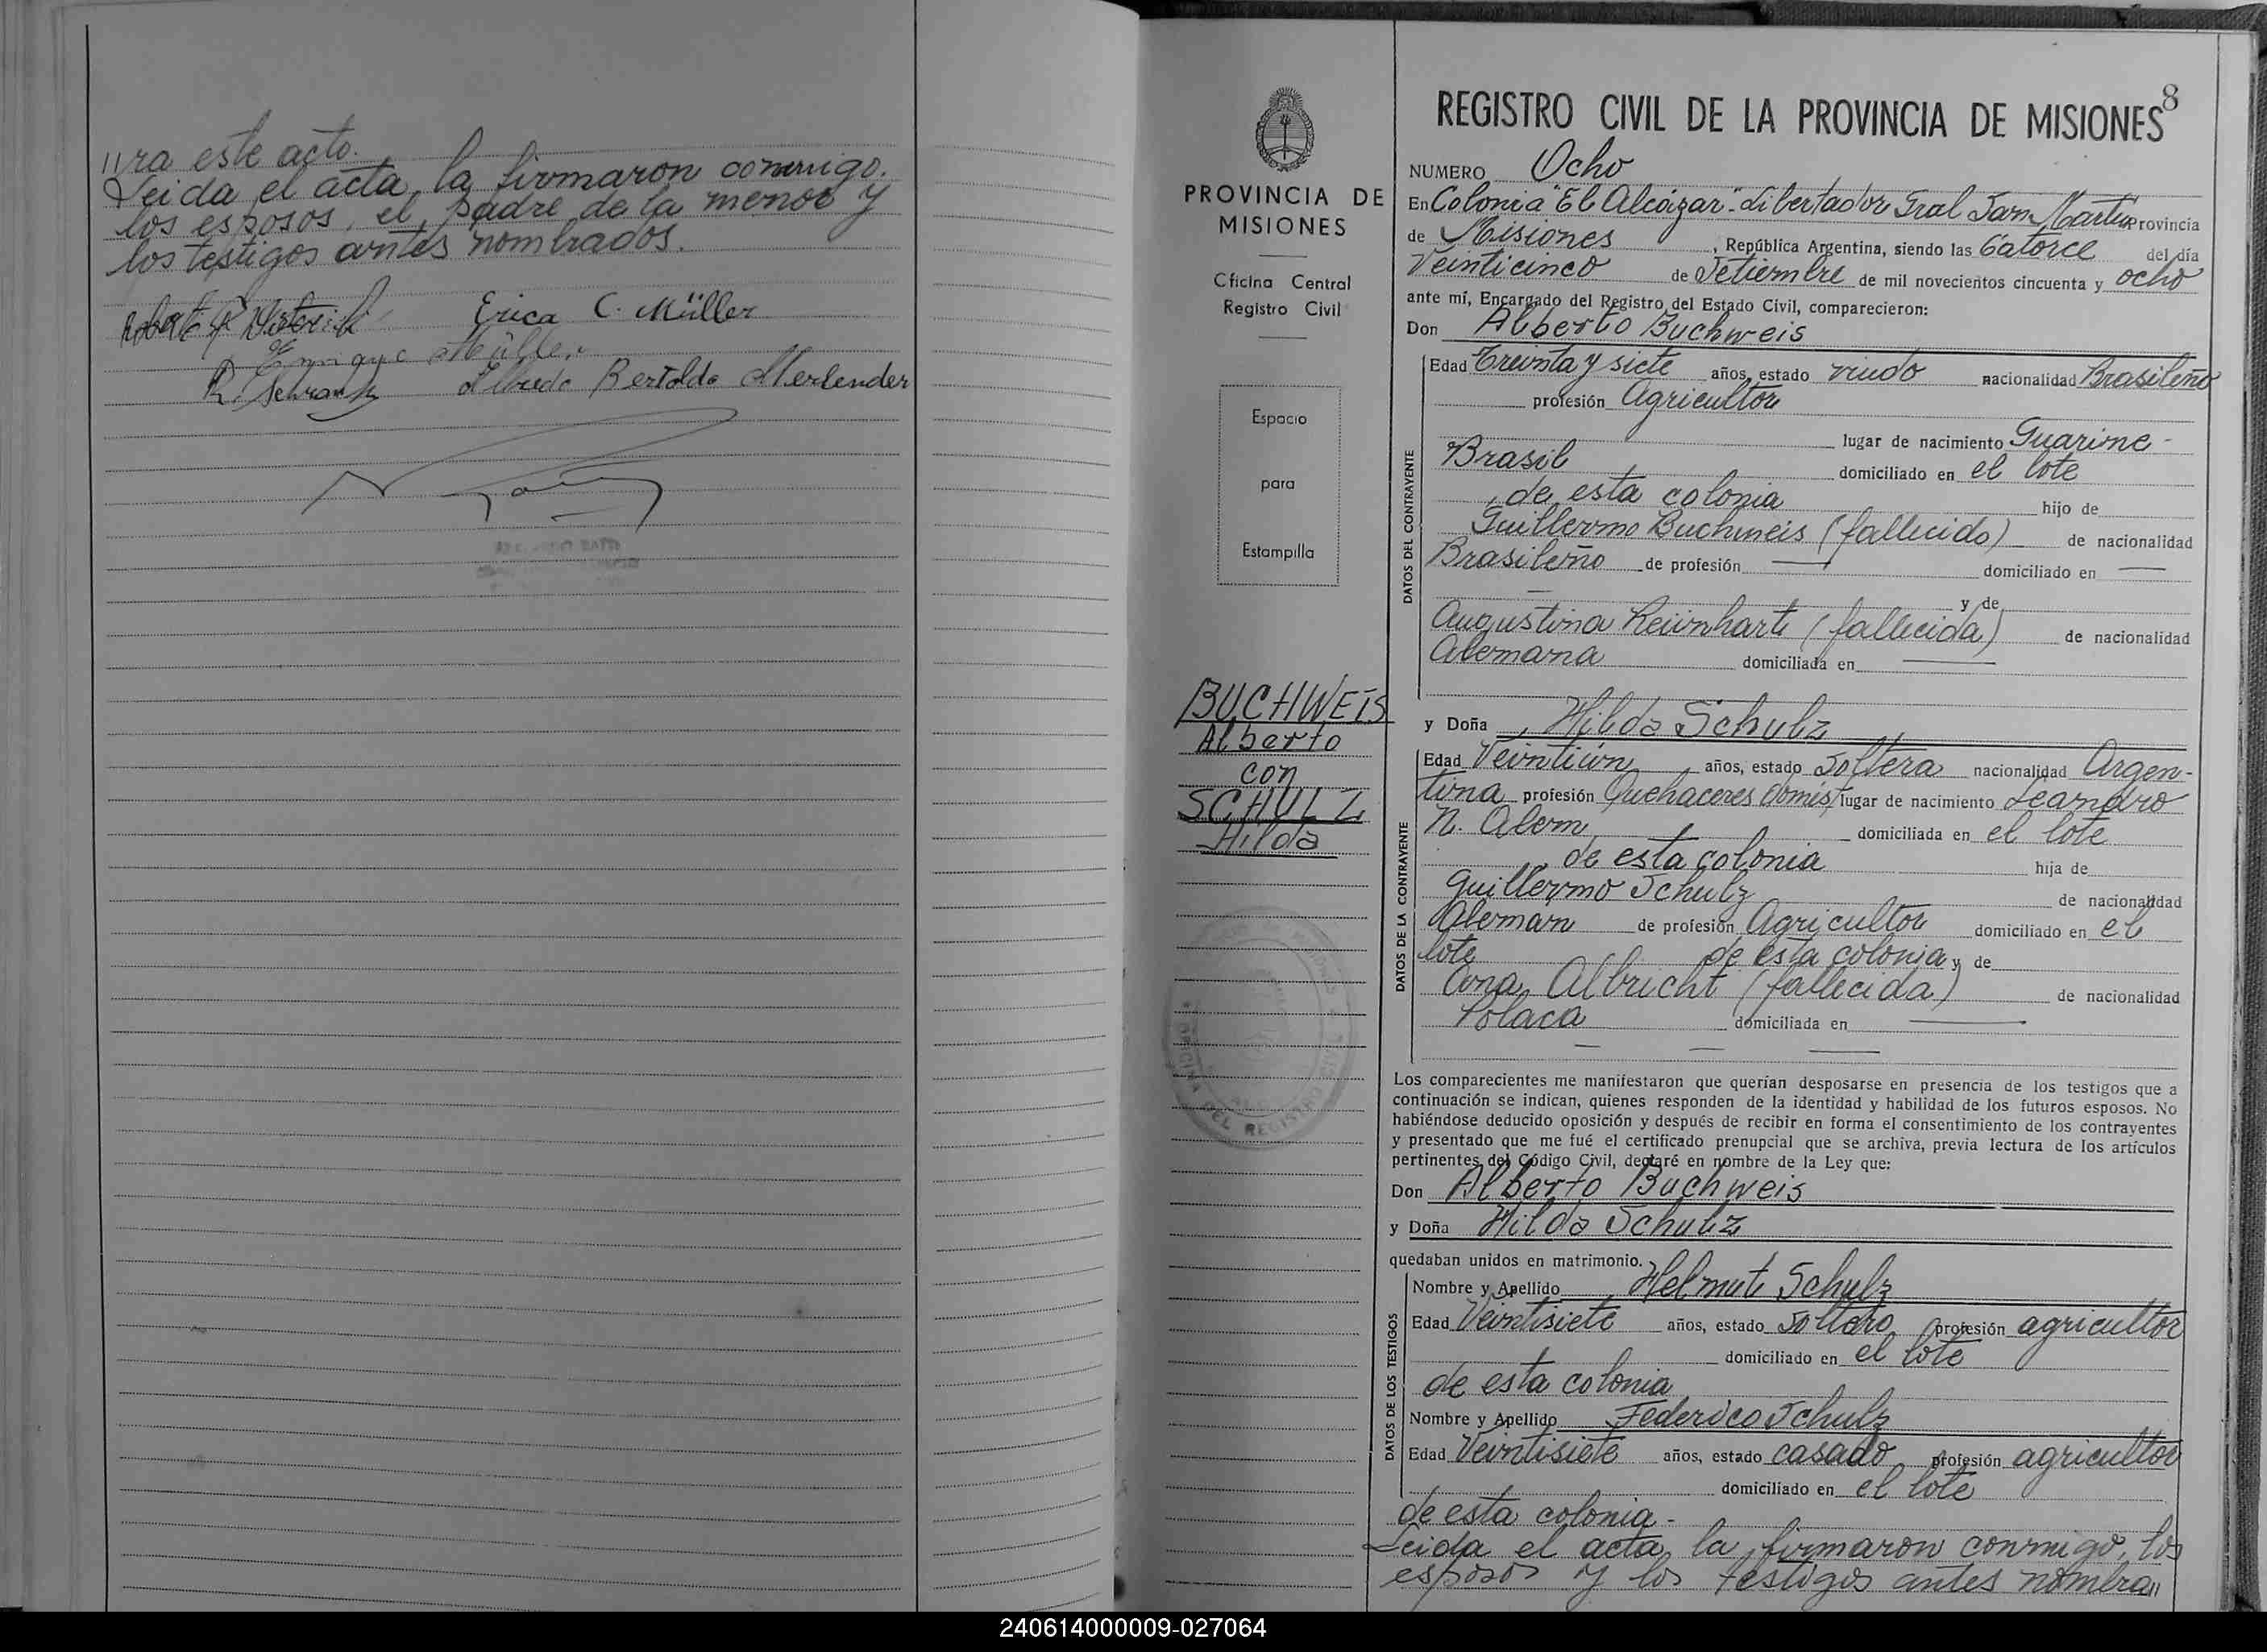 //ra este acto.
Leida el acta, la firmaron conmigo.
los esposos, el padre de la menor y
los testigos antes nombrados.
Erica C. Müller
Enrique Müller
R. Schrank Alfredo Bertoldo Merlender
8
REGISTRO CIVIL DE LA PROVINCIA DE MISIONES
PROVINCIA DE
MISIONES
Oficina Central
Registro Civil
Espacio
para
Estampilla
BUCHWEIS
Alberto
con
SCHULZ
Hilda
NUMERO Ocho
En Colonia "El Alcázar" Libertador Gral San Martin Provincia
de Misiones, República Argentina, siendo las Catorce del día
Veinticinco de Setiembre de mil novecientos cincuenta y ocho
ante mí, Encargado del Registro del Estado Civil, comparecieron:
Don Alberto Buchweis
DATOS DEL CONTRAYENTE
Edad Treinta y siete años, estado viudo nacionalidad Brasileño
profesión Agricultor
lugar de nacimiento Guarime-
Brasil domiciliado en el lote
de esta colonia hijo de
Guillermo Buchweis (fallecido) de nacionalidad
Brasileño de profesión — domiciliado en —
— y de
Augustina Reinhart (fallecida) de nacionalidad
Alemana domiciliada en —
y Doña Hilda Schulz
DATOS DE LA CONTRAYENTE
Edad Veintiún años, estado Soltera nacionalidad Argen-
tina profesión Quehaceres domést lugar de nacimiento Leandro
N. Alem domiciliada en el lote
de esta colonia hija de
Guillermo Schulz de nacionalidad
Aleman de profesión Agricultor domiciliado en el
lote de esta colonia y de
Ana Albricht (fallecida) de nacionalidad
Polaca domiciliada en —
— — —
Los comparecientes me manifestaron que querían desposarse en presencia de los testigos que a
continuación se indican, quienes responden de la identidad y habilidad de los futuros esposos. No
habiéndose deducido oposición y después de recibir en forma el consentimiento de los contrayentes
y presentado que me fué el certificado prenupcial que se archiva, previa lectura de los artículos
pertinentes del Código Civil, declaré en nombre de la Ley que:
Don Alberto Buchweis
y Doña Hilda Schulz
quedaban unidos en matrimonio.
DATOS DE LOS TESTIGOS
Nombre y Apellido Helmut Schulz
Edad Veintisiete años, estado Soltero profesión agricultor
domiciliado en el lote
de esta colonia
Nombre y Apellido Federico Schulz
Edad Veintisiete años, estado casado profesión agricultor
domiciliado en el lote
de esta colonia -
Leida el acta, la firmaron conmigo, los
esposos y los testigos antes nombra//
240614000009-027064